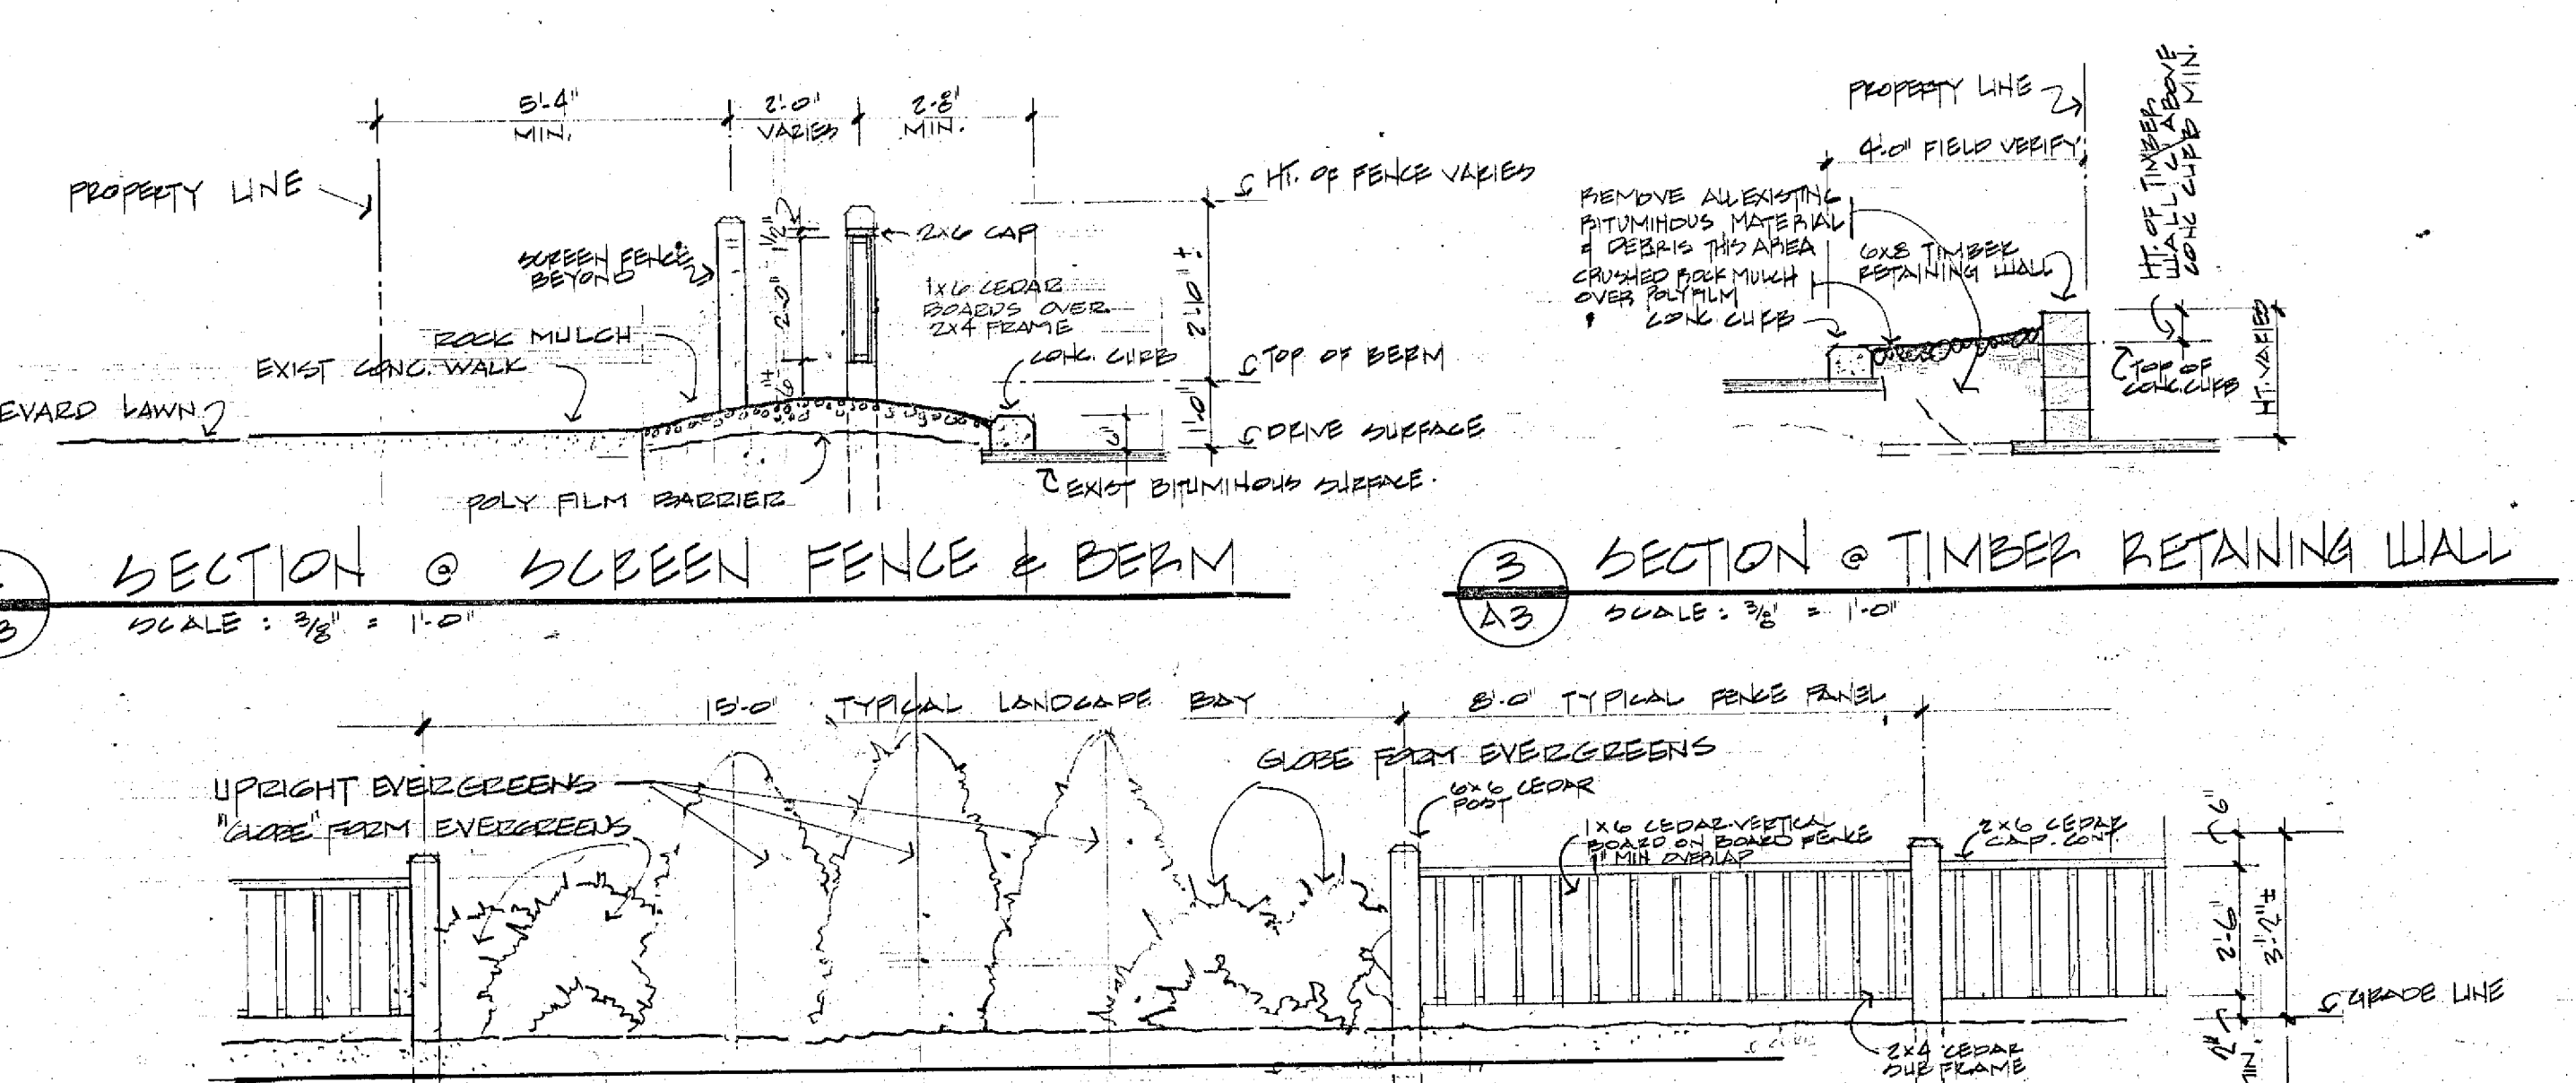 5'-4"
MIN.
2'-0"
VARIES
2'-8"
MIN.
PROPERTY LINE
HT. OF FENCE VARIES
SCREEN FENCE
BEYOND
1½"
2'-0"
6"±
2X6 CAP
1X6 CEDAR
BOARDS OVER
2X4 FRAME
2'-10"±
ROCK MULCH
EXIST CONC. WALK
CONC. CURB
TOP OF BERM
EVARD LAWN
1'-0"
6"
DRIVE SURFACE
POLY FILM BARRIER
EXIST BITUMINOUS SURFACE.
SECTION @ SCREEN FENCE & BERM
SCALE: 3/8" = 1'-0"
PROPERTY LINE
4'-0" FIELD VERIFY
HT. OF TIMBER
WALL ABOVE
CONC CURB MIN.
REMOVE ALL EXISTING
BITUMINOUS MATERIAL
& DEBRIS THIS AREA
CRUSHED ROCK MULCH
OVER POLY FILM
CONC. CURB
6X8 TIMBER
RETAINING WALL
TOP OF
CONC. CURB
HT. VARIES
3
A3
SECTION @ TIMBER RETAINING WALL
SCALE: 3/8" = 1'-0"
15'-0" TYPICAL LANDSCAPE BAY
8'-0" TYPICAL FENCE PANEL
UPRIGHT EVERGREENS
"GLOBE" FORM EVERGREENS
GLOBE FORM EVERGREENS
6X6 CEDAR
POST
1X6 CEDAR-VERTICAL
BOARD ON BOARD FENCE
1" MIN OVERLAP
2X6 CEDAR
CAP. CONT.
6"
2'-6"
3'-2"±
GRADE LINE
2"
2X4 CEDAR
SUB FRAME